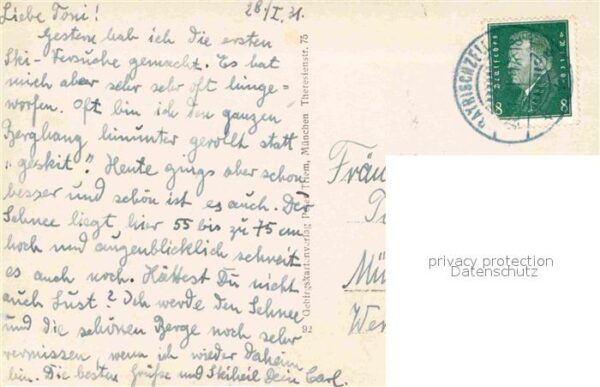 28/I. 31.
Liebe Toni!
Gestern hab ich die ersten
Ski-Versuche gemacht. Es hat
mich aber sehr sehr oft hinge=
worfen. Oft bin ich den ganzen
Berghang hinunter gerollt statt
"geskit". Heute gings aber schon
besser und schön ist es auch. Der
Schnee liegt hier 55 bis zu 75 cm
hoch und augenblicklich schneit
es auch noch. Hättest Du nicht
auch Lust? Ich werde den Schnee
und die schönen Berge noch sehr
vermissen, wenn ich wieder daheim
bin. Die besten Grüße und Skiheil Dein Carl.
92 Gebirgskartenverlag Peter Thiem, München Theresienstr. 75
BAYRISCHZELL
Deutsches Reich
8 8
Fräu
Mü
privacy protection
Datenschutz